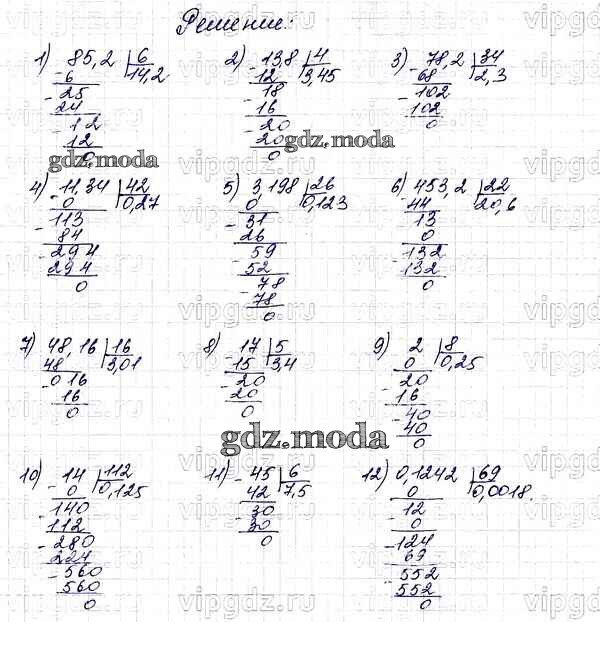 Решение:
1) 85,2 | 6
- 6 | 14,2
- 25
24
- 12
12
0
2) - 13,8 | 4
12 | 3,45
- 18
16
- 20
20
0
3) - 78,2 | 34
68 | 2,3
- 102
102
0
gdz.moda
gdz.moda
4) - 11,34 | 42
0 | 0,27
- 113
84
- 294
294
0
5) 3,198 | 26
0 | 0,123
- 31
26
- 59
52
- 78
78
0
6) - 453,2 | 22
44 | 20,6
13
0
- 132
132
0
7) 48,16 | 16
48 | 3,01
- 016
16
0
8) - 17 | 5
15 | 3,4
- 20
20
0
9) 2 | 8
0 | 0,25
- 20
16
- 40
40
0
gdz.moda
10) - 14 | 112
0 | 0,125
- 140
112
- 280
224
- 560
560
0
11) - 45 | 6
42 | 7,5
- 30
30
0
12) 0,1242 | 69
0 | 0,0018.
- 12
0
- 124
69
- 552
552
0
vipgdz.ru